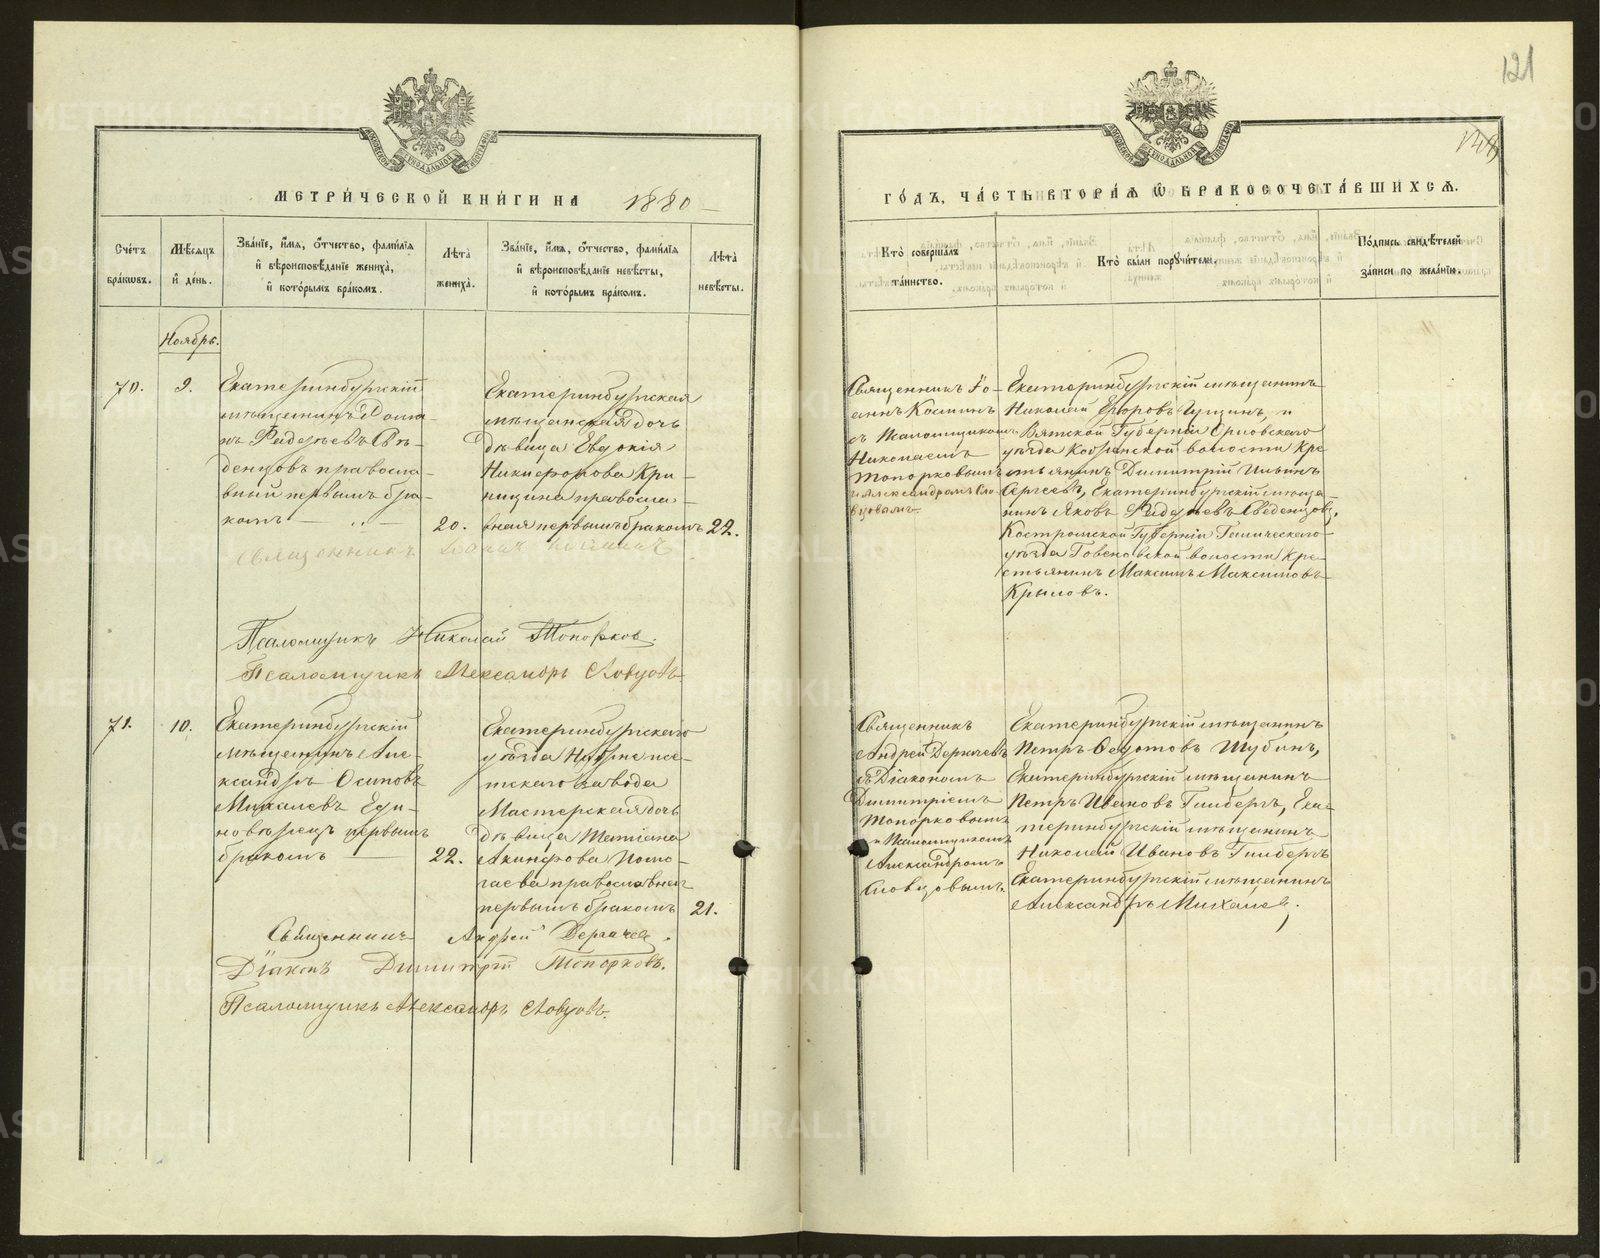 121
МЕТРИ́ЧЕСКОЙ КНИ́ГИ НА 1880
ГО́ДЪ, ЧА́СТЬ ВТОРА́Я Ѡ БРАКОСОЧЕТА́ВШИХСЯ.
Сче́тъ бра́кѡвъ.
Мѣ́сяцъ и́ де́нь.
Зва́нїе, и́мя, ѻ́тчество, фами́лїя и́ вѣроисповѣ́данїе жениха̀, и́ кото́рымъ бра́комъ.
Лѣта̀ жениха̀.
Зва́нїе, и́мя, ѻ́тчество, фами́лїя и́ вѣроисповѣ́данїе невѣ́сты, и́ кото́рымъ бра́комъ.
Лѣта̀ невѣ́сты.
Кто̀ соверша́лъ та́инство.
Кто̀ бы́ли порꙋчи́тели.
По́дпись свидѣ́телей за́писи по жела́нїю.
Ноябрь.
70.
9.
Екатеринбургскій
мѣщанинъ
Фадѣевъ Све-
денцовъ православ-
вный первымъ бра-
комъ
20.
Екатеринбургская
мѣщанская дочь
дѣвица Евдокія
Никифорова Кри-
ницина правосла-
вная первымъ бракомъ
22.
Священникъ Іо-
аннъ Косминъ
съ Псаломщикомъ
Николаемъ
Топорковымъ
и Александромъ Сло-
вцовымъ.
Екатеринбургскій мѣщанинъ
Николай Егоровъ и
Вятской Губерніи Орловскаго
уѣзда волости Кре-
стьянинъ Димитрій Ильинъ
Сергеевъ, Екатеринбургскій мѣща-
нинъ Яковъ Фадѣевъ Сведенцовъ,
Костромской Губерніи
уѣзда волости Кре-
стьянинъ Максимъ Максимовъ
Крыловъ.
Священникъ Іоаннъ Косминъ
Псаломщикъ Николай Топорковъ.
Псаломщикъ Александръ Словцовъ
71.
10.
Екатеринбургскій
мѣщанинъ Але-
ксандръ Осиповъ
Михалевъ Еди-
новѣрецъ первымъ
бракомъ
22.
Екатеринбургскаго
уѣзда Нейвинсе-
тскаго завода
Мастерская дочь
дѣвица Татіана
Акинфова Пота-
гаева православная
первымъ бракомъ
21.
Священникъ
Андрей Деркачевъ
съ Діакономъ
Димитріемъ
Топорковымъ
и Псаломщикомъ
Александромъ
Словцовымъ.
Екатеринбургскій мѣщанинъ
Петръ Ѳедотовъ Шубинъ,
Екатеринбургскій мѣщанинъ
Петръ Ивановъ Гилбергъ, Ека-
теринбургскій мѣщанинъ
Николай Ивановъ Гилбергъ
Екатеринбургскій мѣщанинъ
Александръ Михалевъ.
Священникъ Андрей Деркачевъ.
Діаконъ Димитрій Топорковъ.
Псаломщикъ Александръ Словцовъ.
METRIKI.GASO-URAL.RU